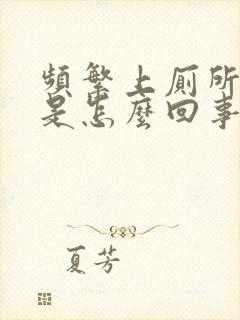 頻繁上厕所
是怎麼回事
夏芳